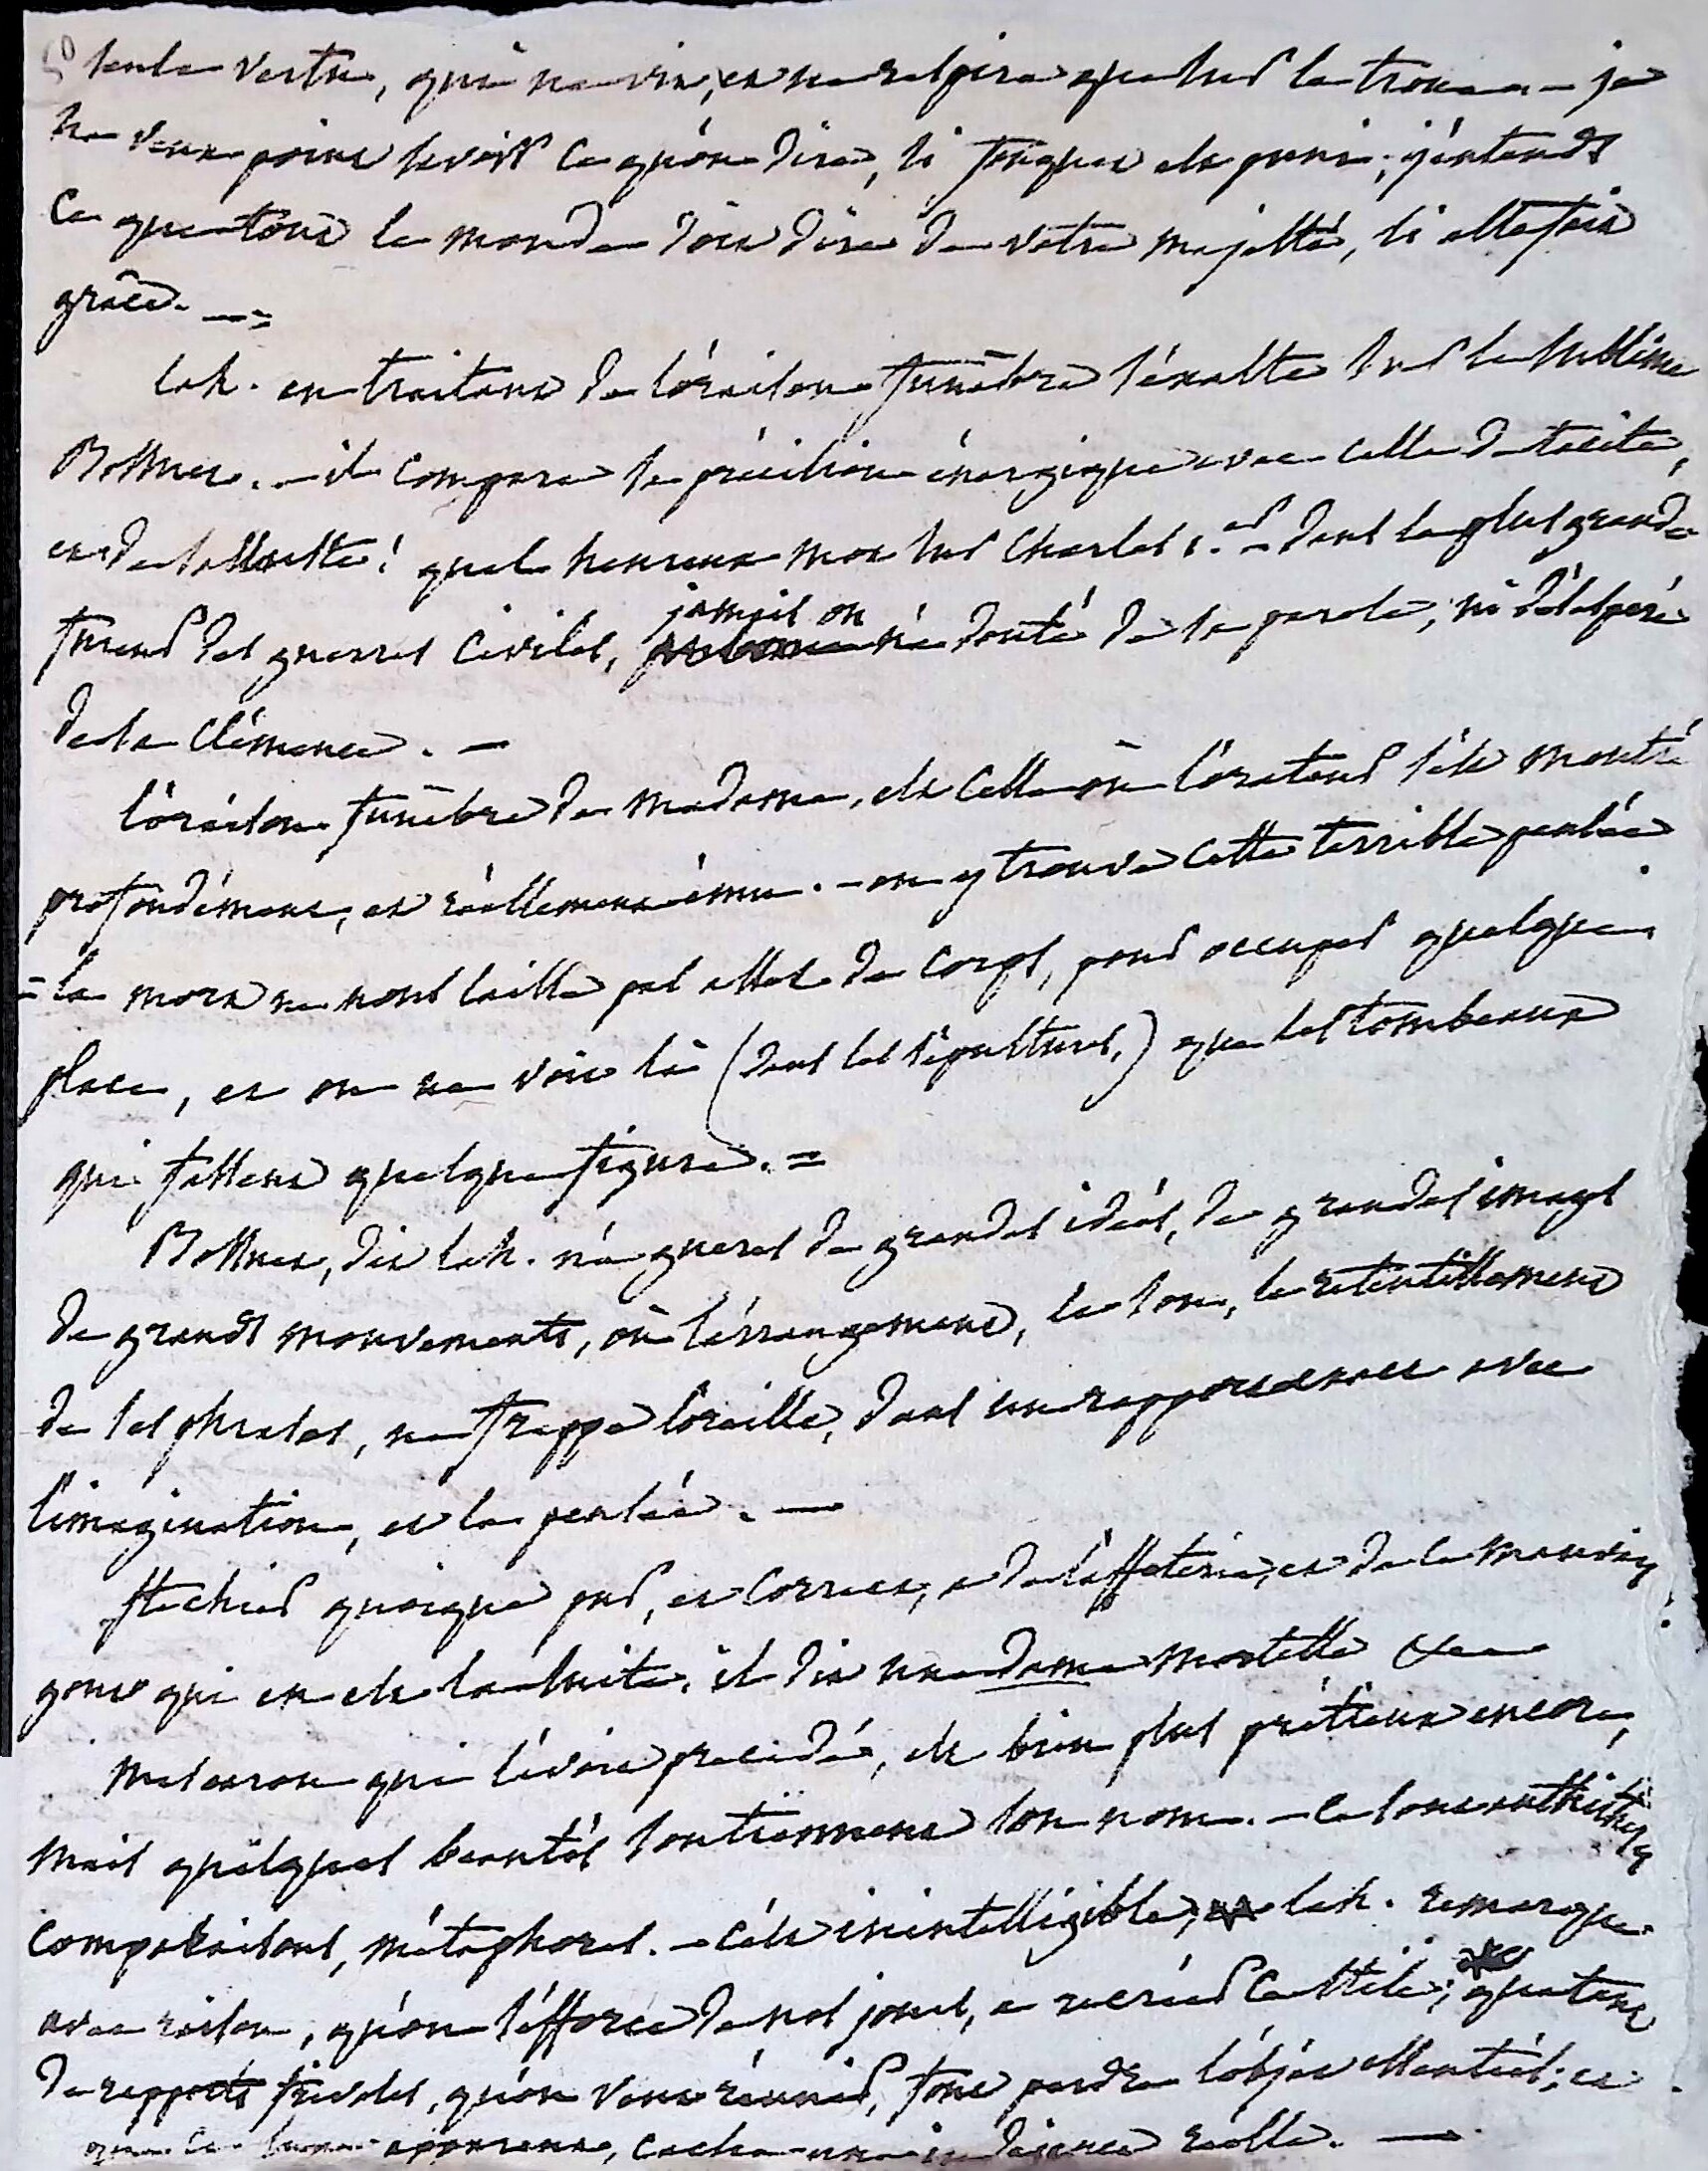 seule vertu, qui ne vit, et ne respire que sur le trone. — je
ne veux point savoir ce qu'on dira, si fouquet est puni; j'entends
ce que tout le monde doit dire de votre majesté, si elle fait
grâce. —
Lah. en traitant de l'oraison funèbre s'exalte sur le sublime
Bossuet. — il compare sa précision énergique avec celle de tacite,
et de salluste! quel heureux mot sur Charles 1.er — dans la plus grande
fureur des guerres civiles, jamais on n'a douté de sa parole, ni désespéré
de sa clémence. —
l'oraison funèbre de madame, est celle où l'orateur s'est montré
profondément, et réellement ému. — on y trouve cette terrible pensée
= la mort ne nous laisse pas assez de corps, pour occuper quelque
place, et on ne voit là (dans les sépultures,) que les tombeaux
qui fassent quelque figure. =
Bossuet, dit Lah. n'a gueres de grandes idées, de grandes images
de grands mouvements, où l'arrangement, le son, le retentissement
de ses phrases, ne frappe l'oreille, dans un rapport exact avec
l'imagination, et la pensée. —
fléchier quoique pur, et correct, a de l'affeterie, et de la mauvais
gout qui en est la suite. il dit une dame mortelle &c
Mascaron qui l'avoit precédé, est bien plus prétieux encore,
mais quelques beautés soutiennent son nom. — ce sont antithèses
comparaisons, métaphores. — c'est inintelligible, Lah. remarque
avec raison, qu'on s'efforce de nos jours, a recréer ce stile; que tant
de rapports frivoles, qu'on veut réunir, font perdre l'objet essentiel; et
que ce luxe apparent, cache une indigence réelle. —